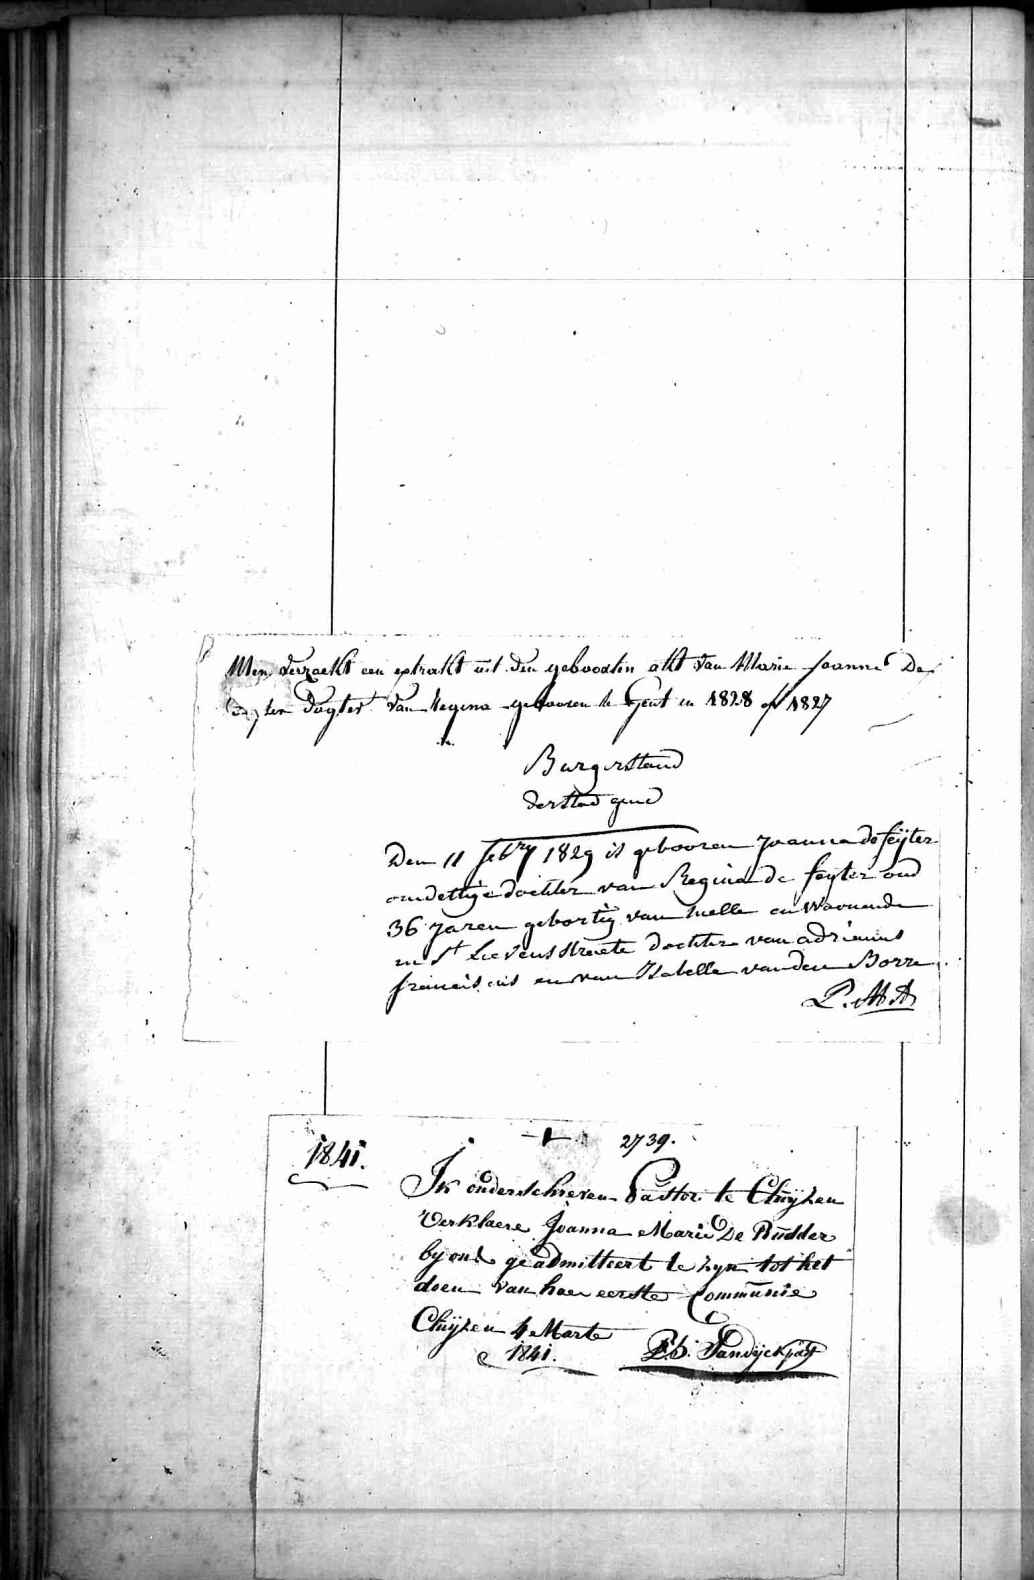 Men verzoekt een extrakt uit den geboorten akt van Marie Joanne De
feyter dogter van Regina gebooren te Gent in 1828 of 1827
Burgerstand
der stad gend
Den 11 feb.ry 1829 is gebooren Joanna de feijter
onwettige dochter van Regina de feyter oud
36 jaren gebortig van melle en woonende
in St Lievens straete dochter van adrianus
franciscus en van Isabelle van den Borre
1841.
2739.
Ik onderschreven Pastor te Cluÿzen
Verklaere Joanna Marie De Rudder
by ons geadmitteert te zyn tot het
doen van haer eerste Communie
Cluÿzen 4 Marte
1841. Ph. Vandijck past